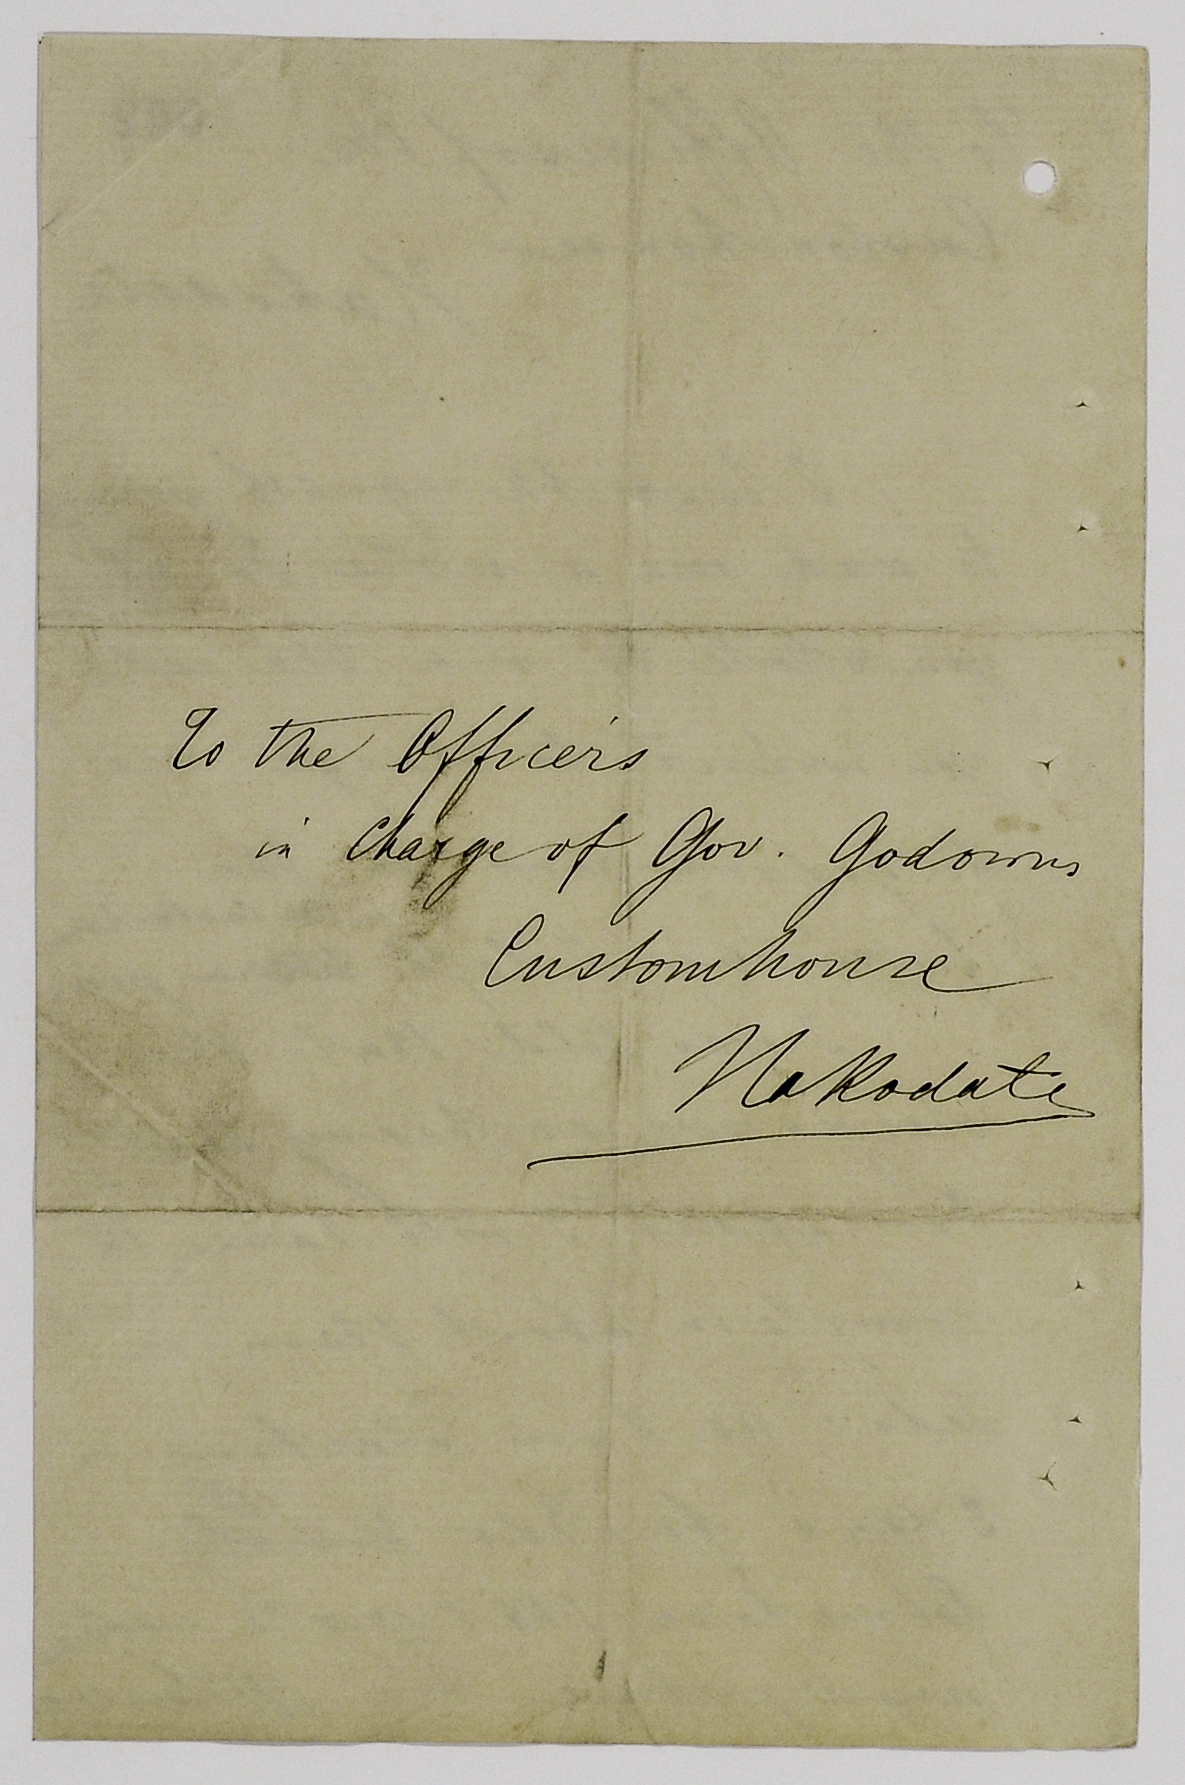 To the Officers
in Charge of Gov. Godowns
Customhouse
Hakodate